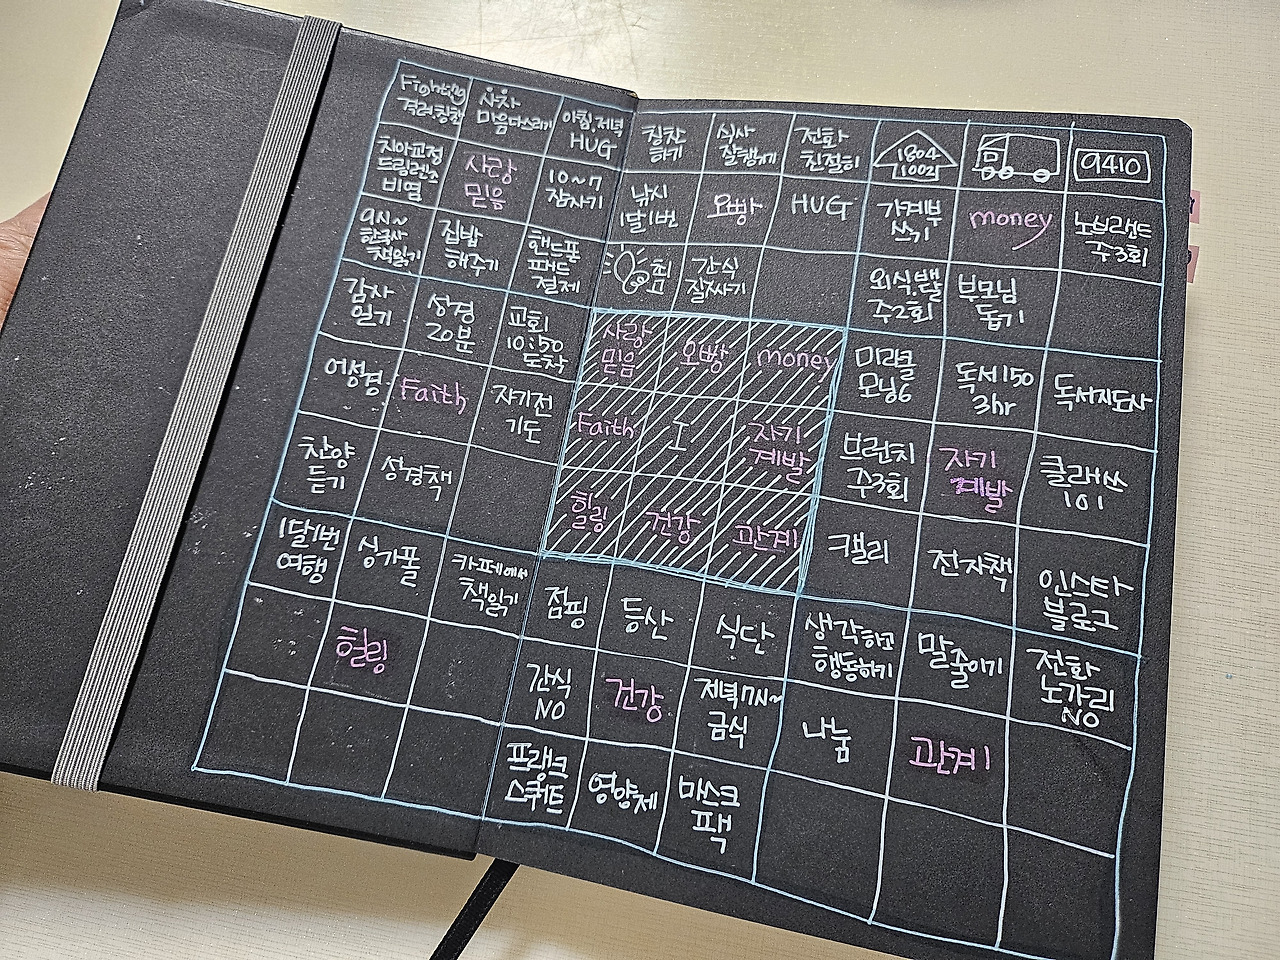 Fighting
격려.칭찬
사자
마음다스리기
아침.저녁
HUG
칭찬
하기
식사
잘챙기기
전화
친절히
1804
1002
9410
치아교정
드림렌즈
비염
사랑
믿음
10~7
잠자기
낚시
1달1번
오빵
HUG
가계부
쓰기
money
노브랜드
주3회
9시~
한국사
책읽기
집밥
해주기
핸드폰
패드
절제
최고
간식
잘싸기
외식.배달
주2회
부모님
돕기
감사
일기
성경
20분
교회
10:50
도착
사랑
믿음
오빵
money
미라클
모닝6
독서150
3hr
독서지도사
어성경
Faith
자기전
기도
Faith
I
자기
계발
브런치
주3회
자기
계발
클래쓰
101
찬양
듣기
성경책
힐링
건강
관계
캘리
전자책
인스타
블로그
1달1번
여행
싱가폴
카페에서
책읽기
점핑
등산
식단
생각하고
행동하기
말줄이기
전화
노가리
NO
힐링
간식
NO
건강
저녁7시~
금식
나눔
관계
프랭크
스쿼트
영양제
마스크
팩